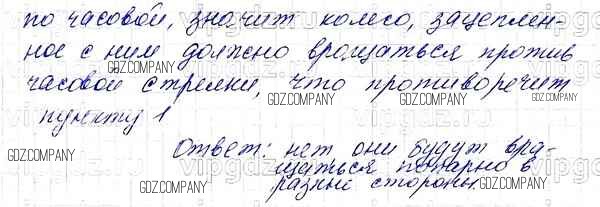 по часовой, значит колесо, зацеплен-
ное с ним должно вращаться против
часовой стрелки, что противоречит
пункту 1
Ответ: нет они будут вра-
щаться попарно в
разные стороны.
GDZ.COMPANY
GDZ.COMPANY
GDZ.COMPANY
GDZ.COMPANY
GDZ.COMPANY
GDZ.COMPANY
GDZ.COMPANY